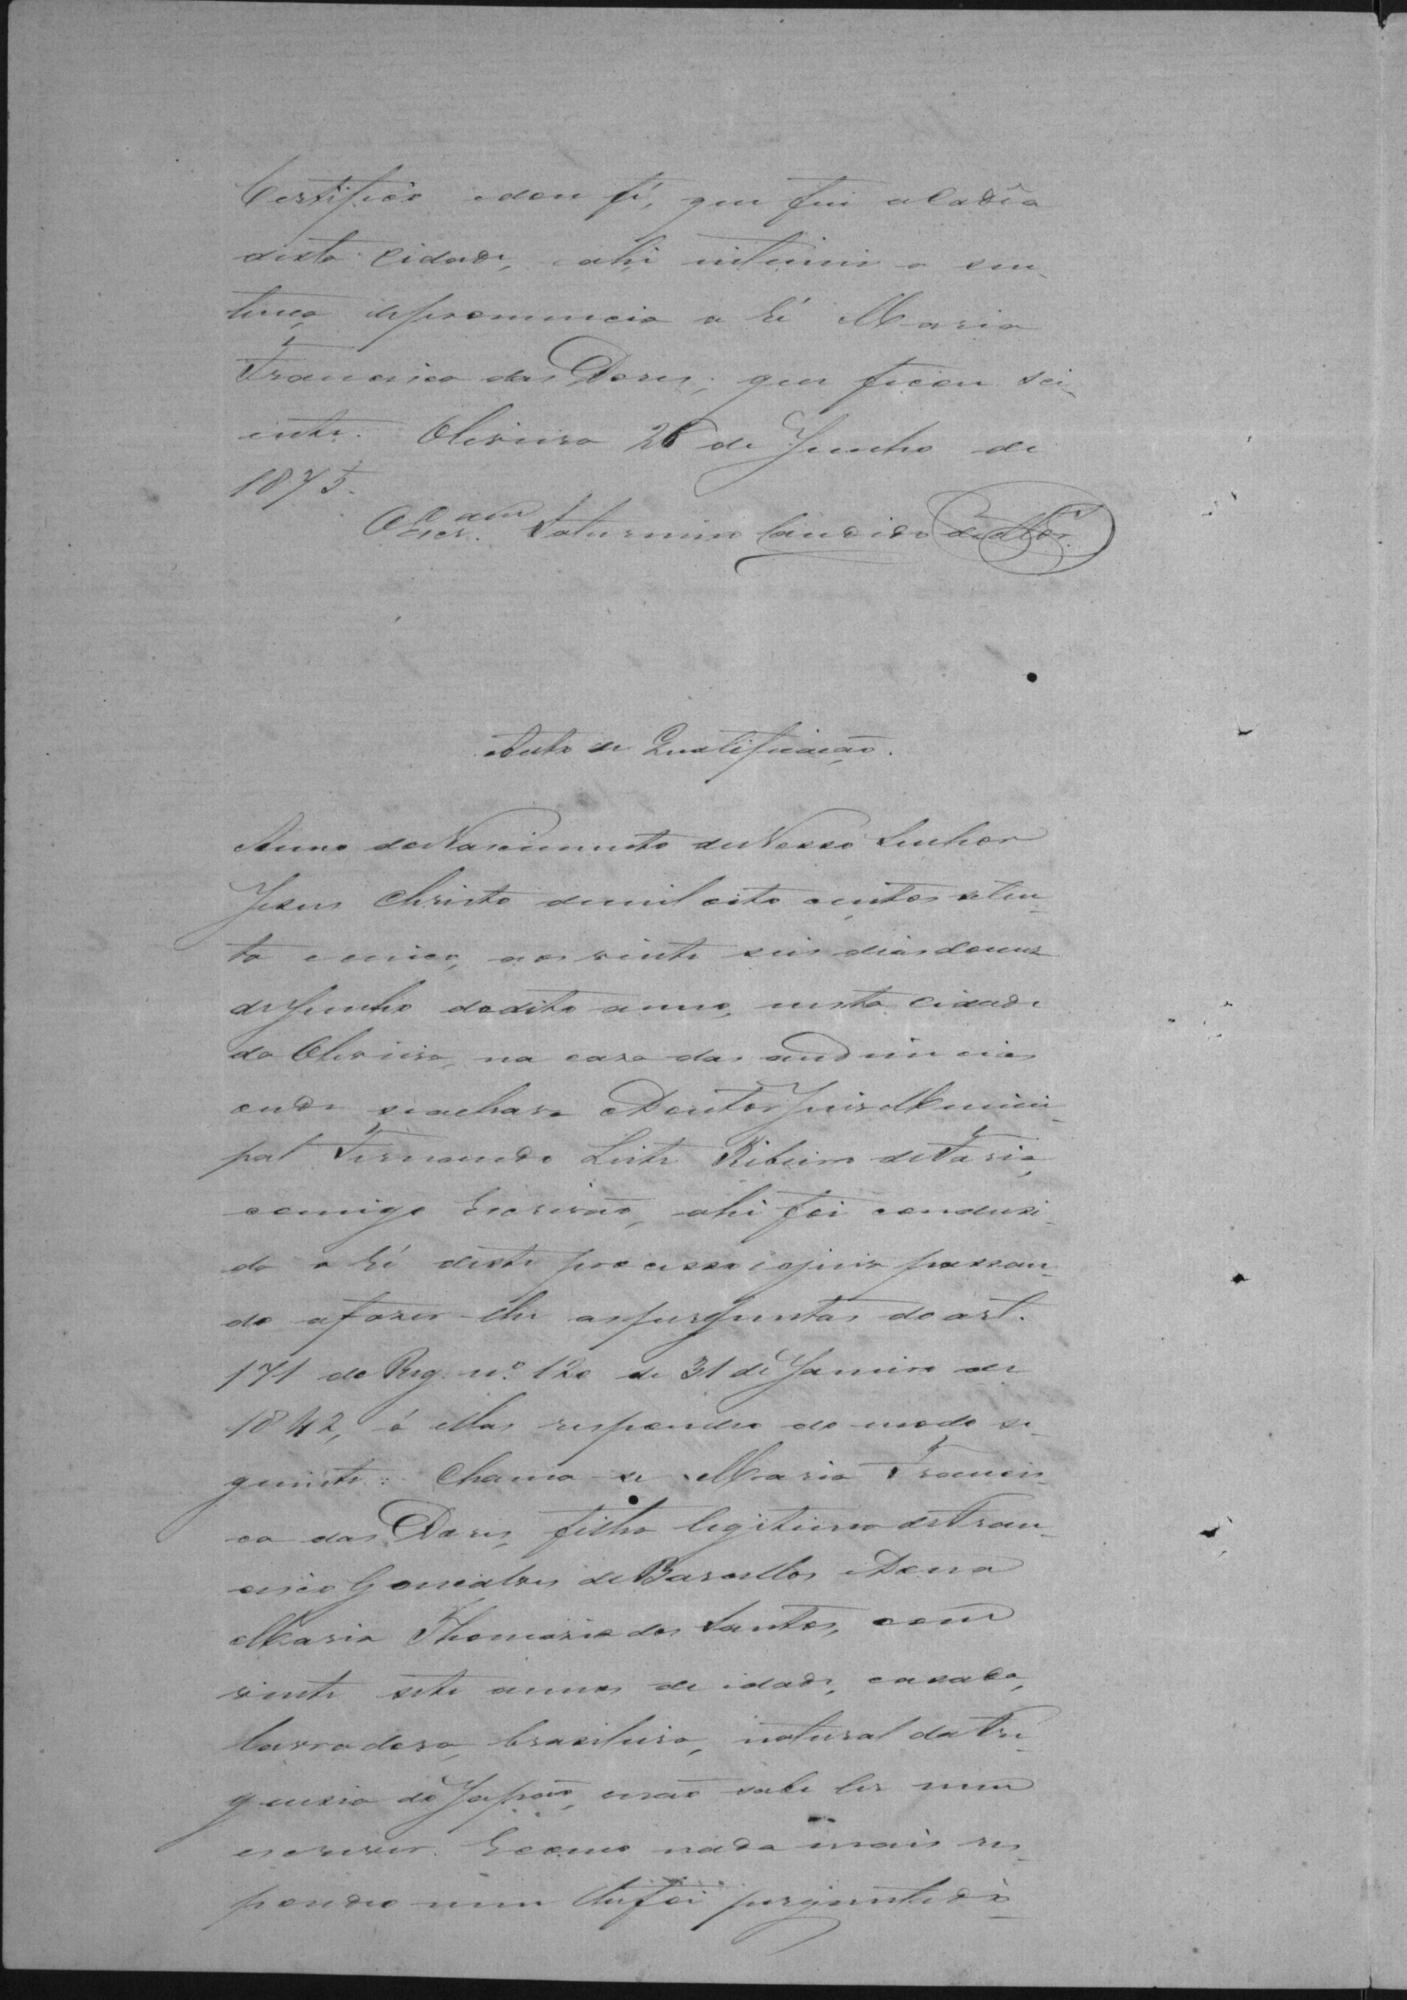 Certifico e dou fé, que fui a Cadêa
desta Cidade, e ahi intimei a sen-
tença de pronuncia a Ré Maria
Francisca das Dores; que ficou sci-
ente. Oliveira 26 de Junho de
1875.
O Escr. am Saturnino Candido
Auto de Qualificação.
Anno do Nascimento de Nosso Senhor
Jesus Christo de mil oito centos seten-
ta e cinco, aos vinte seis dias do mez
de Junho do dito anno, nesta Cidade
da Oliveira, na casa das audiencias
onde se achava o Doutor Juiz Munici-
pal Fernando Leite Ribeiro de Faria,
comigo Escrivão, ahi foi condusi-
da a Ré deste processo e o juiz passan-
do a fazer-lhe as perguntas do art.
171 do Reg. nº 120 de 31 de Janeiro de
1842, é ellas respondeo do modo se-
guinte: Chama-se Maria Francis-
ca das Dores, filha legitima de Fran-
cisco Gonçalves de Barcellos e Dona
Maria Thomazia dos Santos, com
vinte sete annos de idade, casada,
lavradora, brasileira, natural da Fre-
guesia do Japão, não sabe ler nem
escrever. E como nada mais res-
pondeo nem lhe foi perguntado